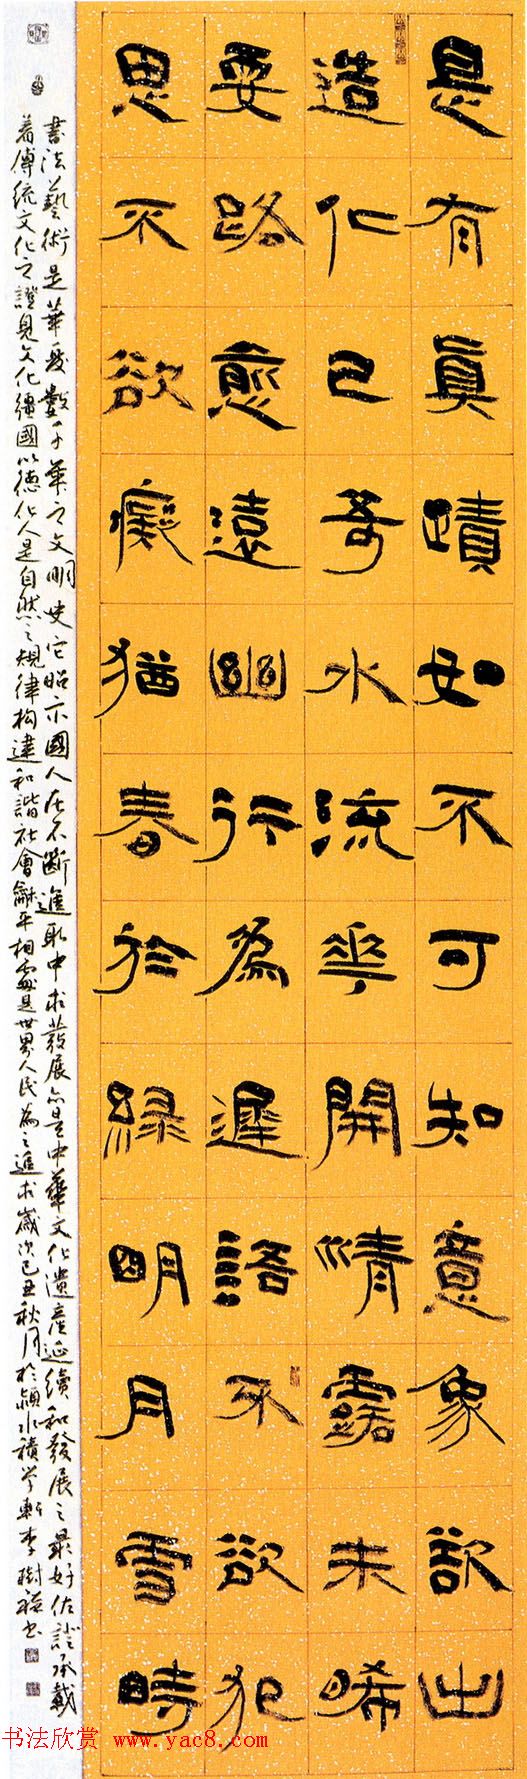 是有真蹟如不可知意象欲出
造化已奇水流花開情露未晞
要路愈遠幽行為遲語不欲犯
思不欲癡猶春於綠明月雪時
書法藝術是華夏數千年之文明史它昭示國人在不斷進取中求發展亦是中華文化遺產延續和發展之最好佐證承載
着傳統文化之證見文化疆國以德化人是自然之規律构建和諧社會龢平相處是世界人民為之進求歲次己丑秋月於潁水積學軒李樹 書
书法欣赏 www.yac8.com